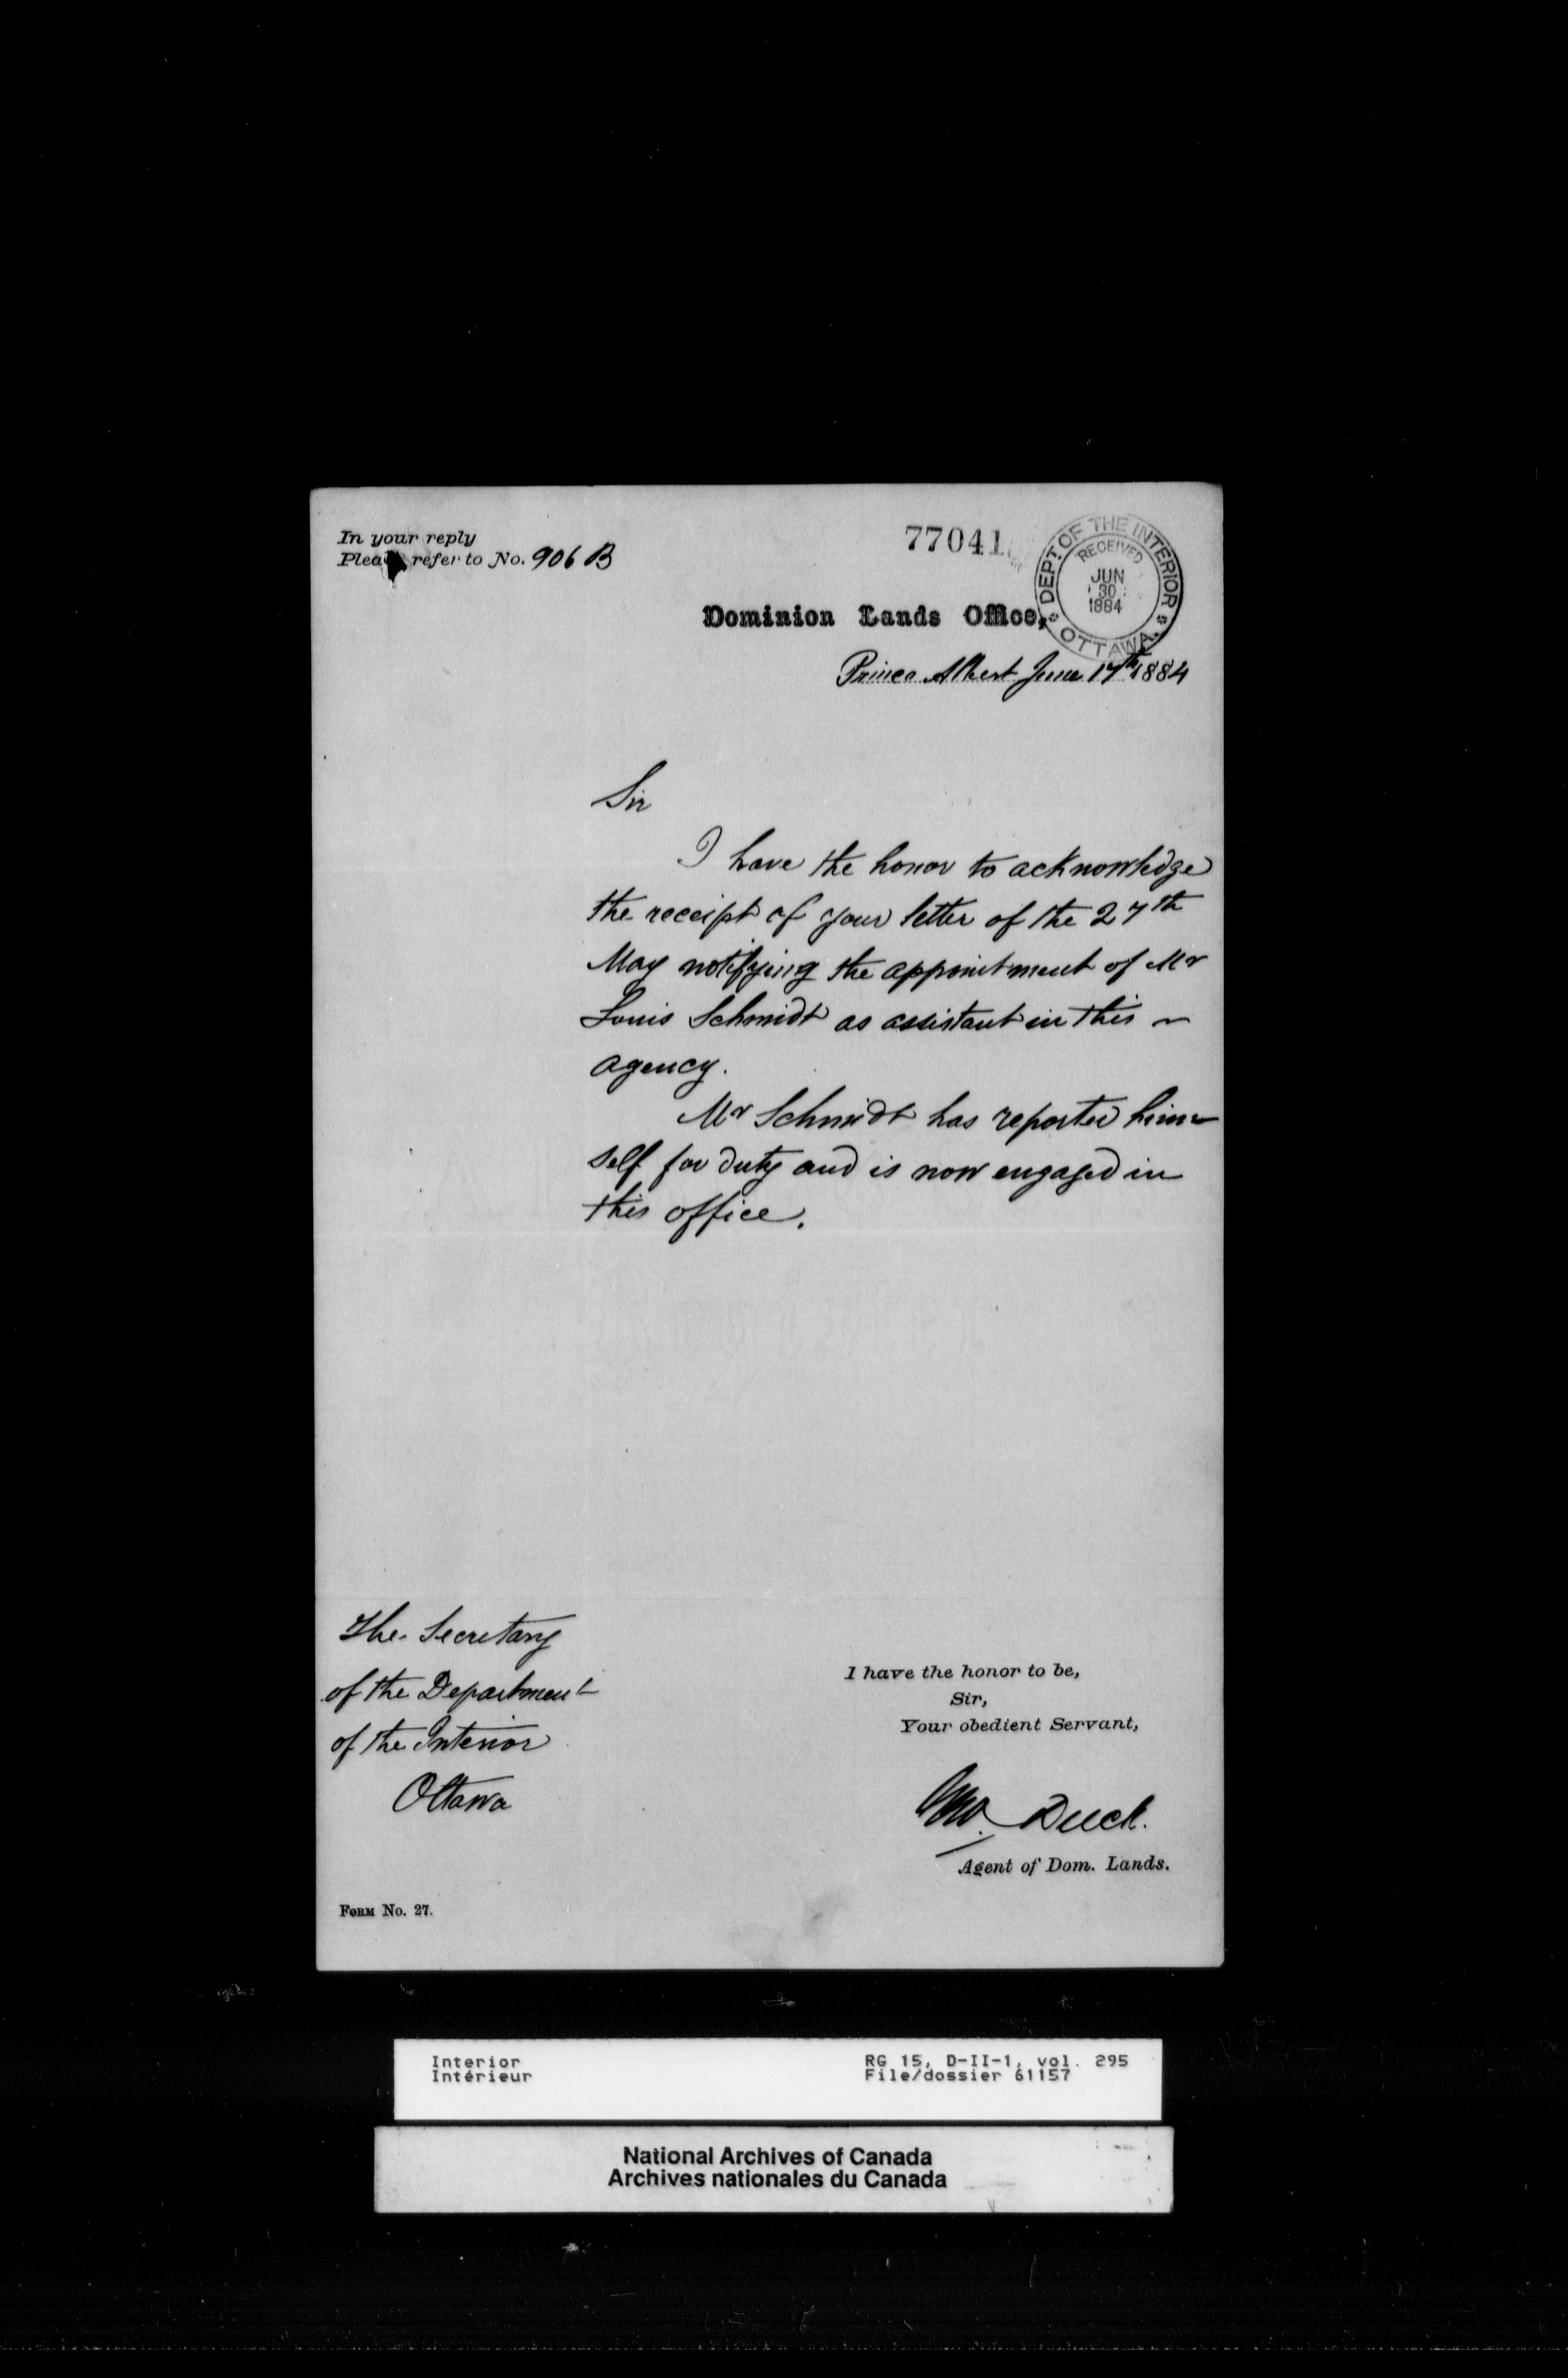 In your reply
Please refer to No. 906 B
77041
DEPT. OF THE INTERIOR
RECEIVED
JUN
30
1884
OTTAWA
Dominion Lands Office,
Prince Albert June 17th 1884
Sir
I have the honor to acknowledge
the receipt of your letter of the 27th
May notifying the appointment of Mr
Louis Schmidt as assistant in this
agency.
Mr Schmidt has reported him
self for duty and is now engaged in
this office.
The Secretary
of the Department
of the Interior
Ottawa
I have the honor to be,
Sir,
Your obedient Servant,
Jno. Duck.
Agent of Dom. Lands.
FORM No. 27.
Interior
Intérieur
RG 15, D-II-1, vol. 295
File/dossier 61157
National Archives of Canada
Archives nationales du Canada